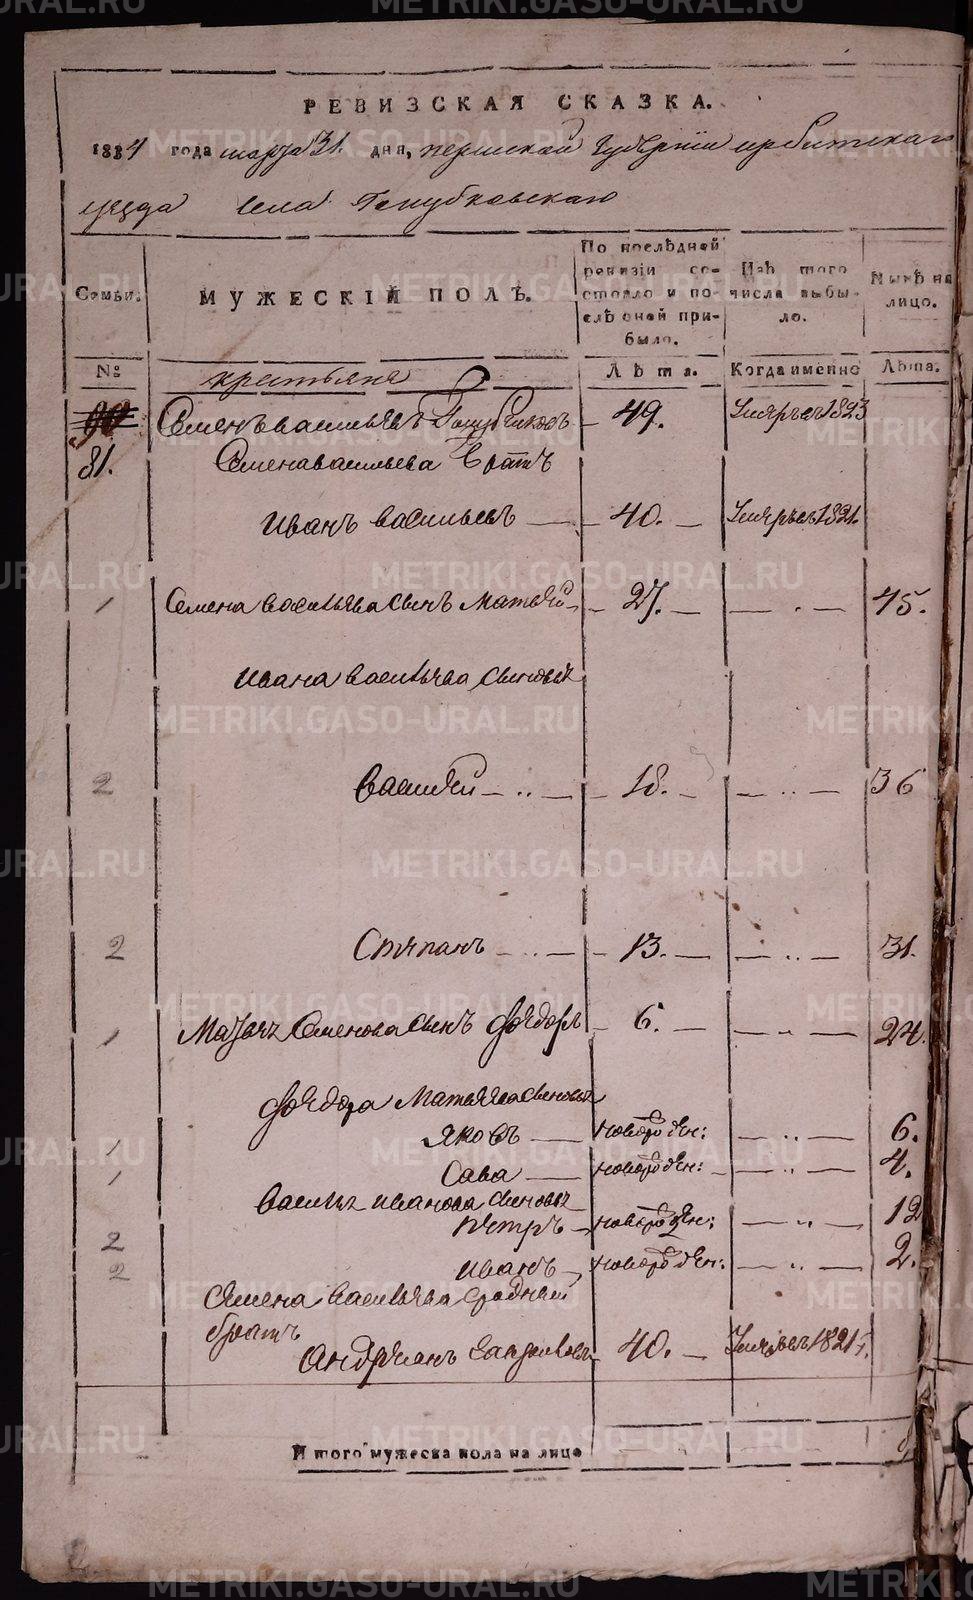 РЕВИЗСКАЯ СКАЗКА.
1834 года марта 31. дня, пермской Губернии ирбитскаго
уезда села Голубковскаго
Семьи.
МУЖЕСКІЙ ПОЛЪ.
По послѣдней ревизіи состояло и послѣ оной прибыло.
Изъ того числа выбыло.
Нынѣ на лицо.
№
крестьяня
Лѣта.
Когда именно
Лѣта.
90
Семенъ васильевъ Голубчиковъ 49. Умеръ въ 1823
81.
Семена васильева братъ
Иванъ васильевъ 40. Умеръ въ 1821.
1 Семена васильева сынъ Матвей 27. 45.
Ивана васильева сыновья
2 Василей 18. 36
2 Степанъ 13. 31.
1 Матвея Семенова сынъ Фёдоръ 6. 24.
Фёдора Матвеева сыновья
1 Яковъ новорожден: 6.
1 Сава новорожден: 4.
Василья иванова сыновья
2 Петръ новорожден: 12
2 иванъ новорожден: 2.
Семена васильева сродный
братъ
Андреянъ 40. Умеръ въ 1821
Итого мужеска пола на лицо
METRIKI.GASO-URAL.RU